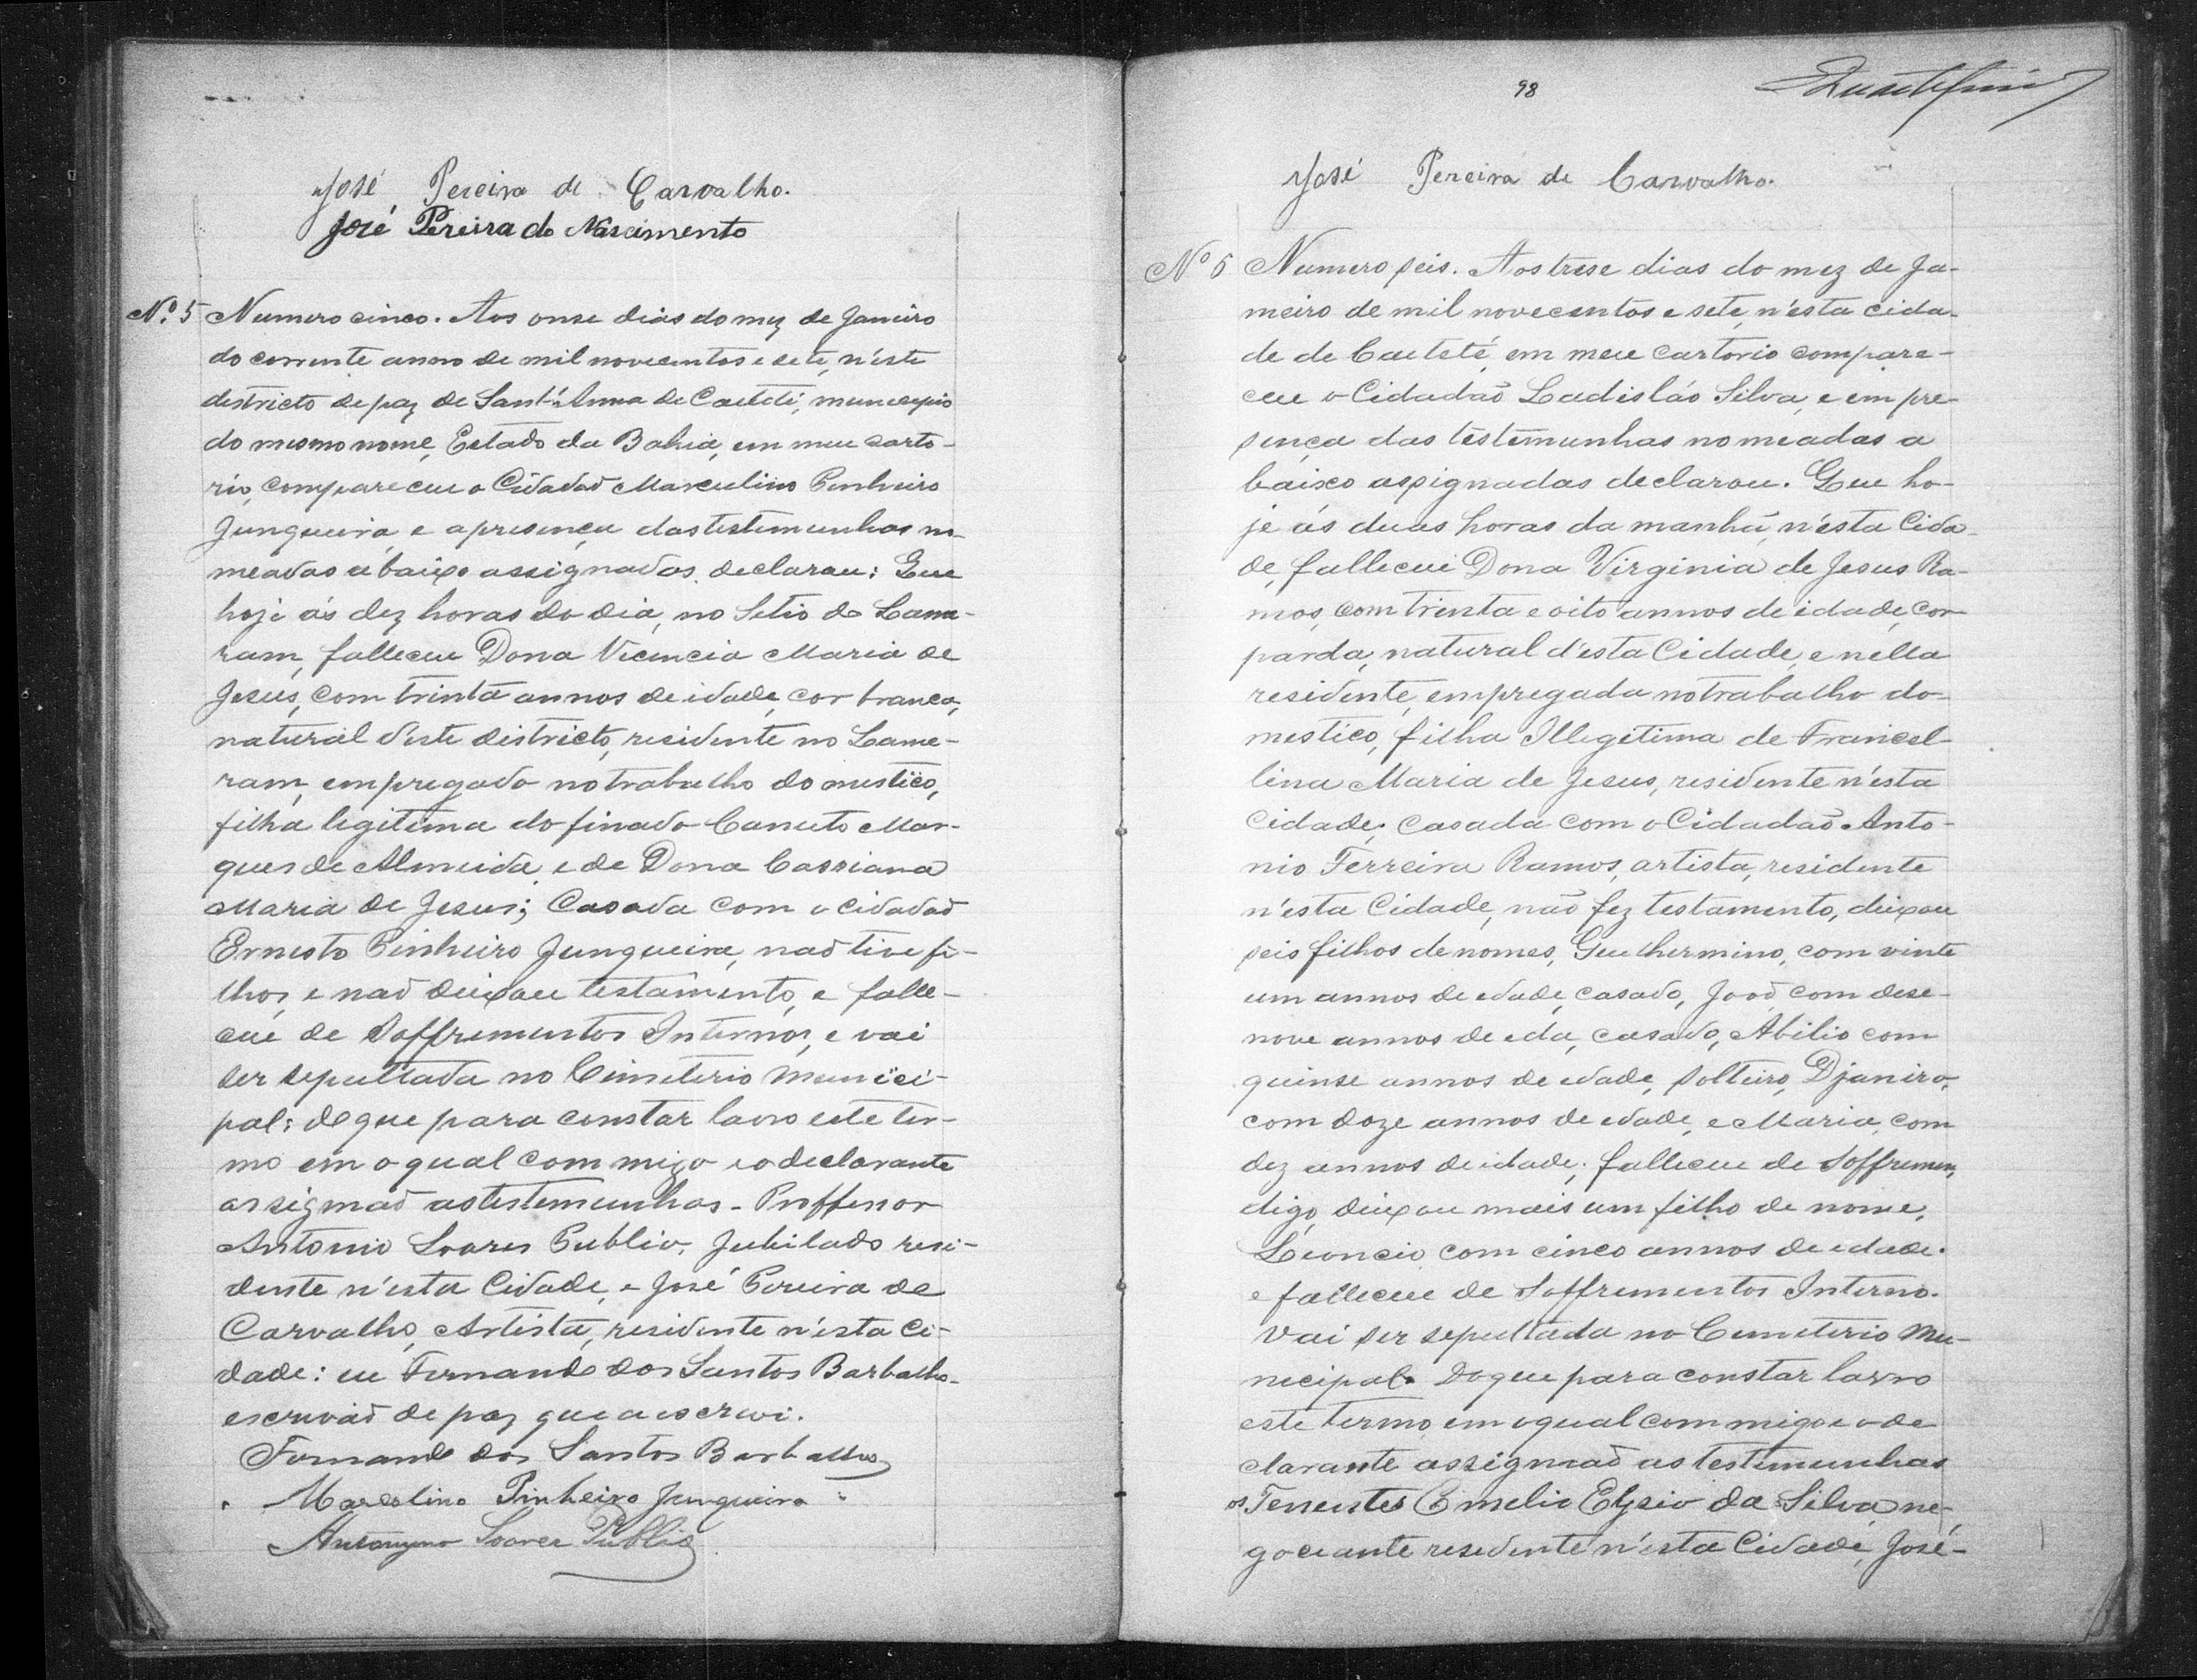 José Pereira de Carvalho.
José Pereira do Nascimento
Nº 5 Numero cinco. Aos onse dias do mez de Janeiro
do corrente anno de mil novecentos e sete, n'este
districto de paz de Sant'Anna de Caeteté, municipio
do mesmo nome, Estado da Bahia, em meu carto-
rio, compareceu o Cidadaõ Marculino Pinheiro
Junqueira, e a presença das testemunhas no-
meadas abaixo assignadas, declarou: Que
hoje ás dez horas do dia, no Setio do Lama-
ram, falleceu Dona Vicencia Maria de
Jesus, com trinta annos de idade, cor branca,
natural d'este districto, residente no Lame-
ram, empregado no trabalho domestico,
filha legitima do finado Canuto Mar-
ques de Almeida, e de Dona Cassiana
Maria de Jesus; Casada com o cidadaõ
Ernesto Pinheiro Junqueira, naõ tive fi-
lhos, e naõ deixou testamento, e falle-
ceu de Soffrimentos Internos, e vai
ser sepultada no Cimiterio Munici-
pal: do que para constar lavro este ter-
mo em o qual commigo e o declarante
assignaõ as testemunhas - Proffessor
Antonio Soares Publio, Jubilado resi-
dente n'esta Cidade, e José Pereira de
Carvalho, Artista, residente n'esta Ci-
dade: eu Fernando dos Santos Barbalho
escrivaõ de paz que a escrevi.
Fernando dos Santos Barbalho
Marcolino Pinheiro Junqueira
Soares Publio
98
José Pereira de Carvalho.
Nº 6 Numero seis. Aos trese dias do mez de Ja-
neiro de mil novecentos e sete, n'esta cida-
de de Caeteté, em meu cartorio compare-
ceu o Cidadaõ Ladisláo Silva, e em pre-
sença das testemunhas nomeadas a
baixo assignadas declarou. Que ho-
je ás duas horas da manhã, n'esta Cida-
de, falleceu Dona Virginia de Jesus Ra-
mos, com trinta e oito annos de idade, cor
parda, natural d'esta Cidade, e nella
residente, empregada no trabalho do-
mestico, filha Illegitima de Francel-
lina Maria de Jesus, residente n'esta
Cidade; casada com o Cidadaõ Anto-
nio Ferreira Ramos, artista, residente
n'esta Cidade, naõ fez testamento, deixou
seis filhos de nomes, Guilhermino, com vinte
um annos de edade, casado, Joaõ com dese-
nove annos de eda, casado, Abilio com
quinse annos de edade, solteiro, Djaniro,
com doze annos de edade, e Maria, com
dez annos de idade; falleceu de Soffrimen,
digo, deixou mais um filho de nome,
Leoncio, com cinco annos de edade.
e falleceu de Soffrimentos Interno.
Vai ser sepultada no Cemiterio Mu-
nicipal. Do que para constar lavro
este termo, em o qual commigo e o de
clarante assignaõ as testemunhas
os Tenentes Emelio Elysio da Silva, ne-
gociante residente n'esta Cidade, José-